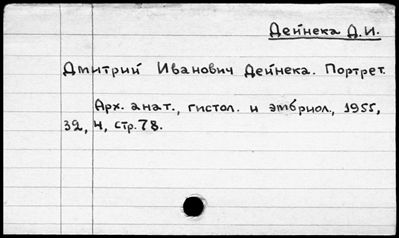 Дейнека Д.И.
Дмитрий Иванович Дейнека. Портрет.
Арх. анат., гистол. и эмбриол., 1955,
32, 4, стр. 78.